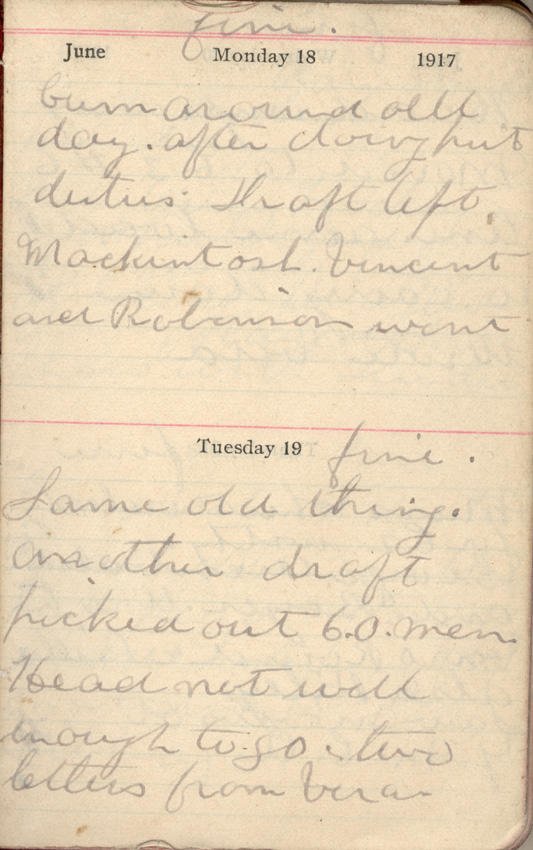 fine.
June Monday 18 1917
bum around all
day. after doing hut
duties. Draft left.
Mackintosh. Vincent
and Robinson went
Tuesday 19 fine.
Same old thing.
another draft
picked out 60. men.
Head not well
enough to go. two
letters from Vera